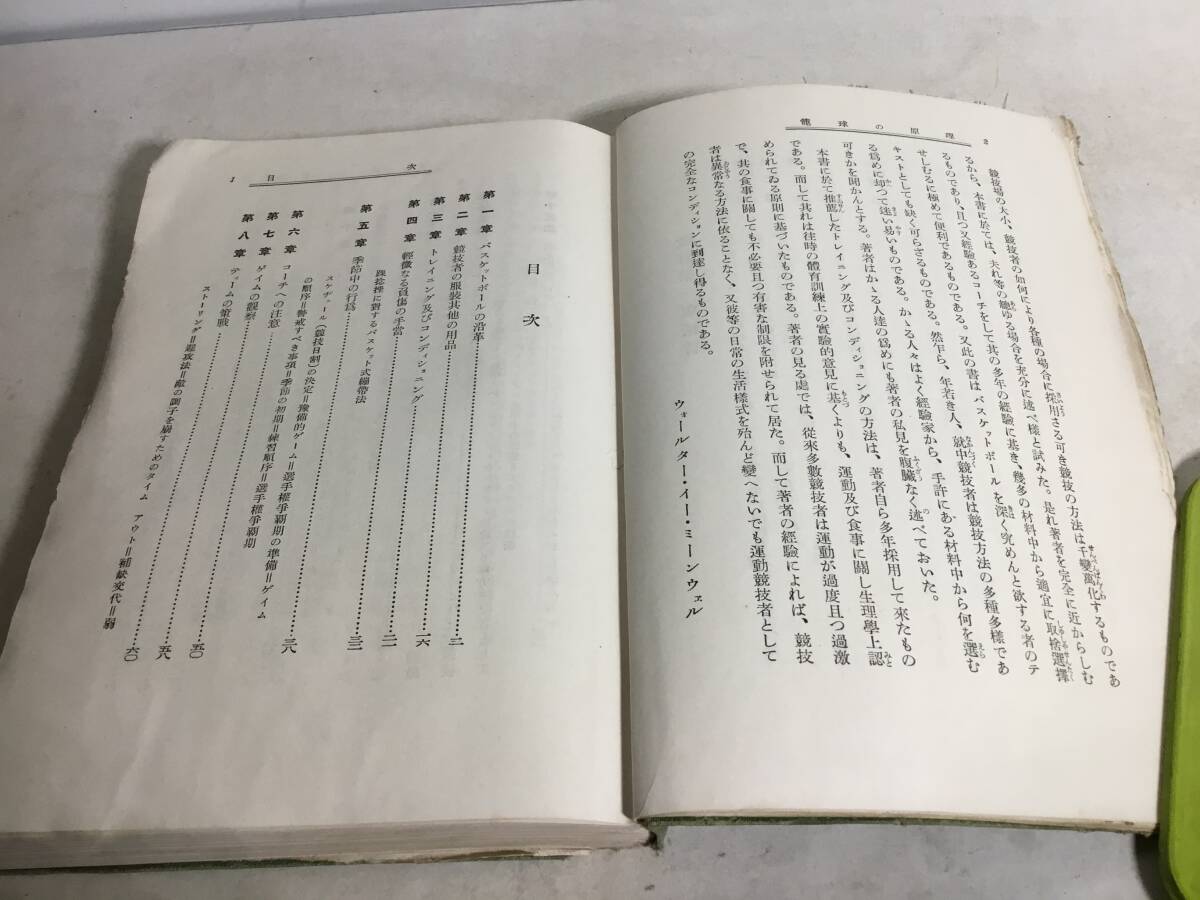 籠球の原理
2
競技場の大小、競技者の如何により各種の場合に採用さる可き競技の方法は千變萬化するものであ
るから、本書に於ては、夫れ等の總ゆる場合を充分に述べ樣と試みた。是れ著者を完全に近からしむ
るものであり、且つ又經驗あるコーチをして其の多年の經驗に基き、幾多の材料中から適宜に取捨選擇
せしむるに極めて便利であるものである。又此の書はバスケットボールを深く究めんと欲する者のテ
キストとしても缺く可らざるものである。然乍ら、年若き人、就中競技者は競技方法の多種多樣であ
る爲めに却つて迷い易いものである。かゝる人々はよく經驗家から、手許にある材料中から何を選む
可きかを聞かんとする。著者はかゝる人達の爲めにも著者の私見を腹臟なく述べておいた。
本書に於て推薦したトレイニング及びコンディショニングの方法は、著者自ら多年採用して來たもの
である。而して其れは往時の體育訓練上の實驗的意見に基くよりも、運動及び食事に關し生理學上認
められてゐる原則に基づいたものである。著者の見る處では、從來多數競技者は運動が過度且つ過激
で、其の食事に關しても不必要且つ有害な制限を附せられて居た。而して著者の經驗によれば、競技
者は異常なる方法に依ることなく、又彼等の日常の生活樣式を殆んど變へないでも運動競技者として
の完全なコンディションに到達し得るものである。
ウォールター・イー・ミーンウェル
目次
1
目次
第一章 バスケットボールの沿革
第二章 競技者の服裝其他の用品 二
第三章 トレイニング及びコンディショニング 一六
第四章 輕微なる負傷の手當 二二
踝捻挫に對するバスケット式繃帶法
第五章 季節中の行爲 三三
スケヂュール(競技日割)の決定＝豫備的ゲーム＝選手權爭覇期の準備＝ゲイム
の順序＝警戒すべき事項＝季節の初期＝練習順序＝選手權爭覇期
第六章 コーチへの注意 三八
第七章 ゲイムの觀察 五〇
第八章 ティームの策戰 五八
ストーリング＝遲攻法＝敵の調子を崩すためのタイム アウト＝補缺交代＝弱
六〇